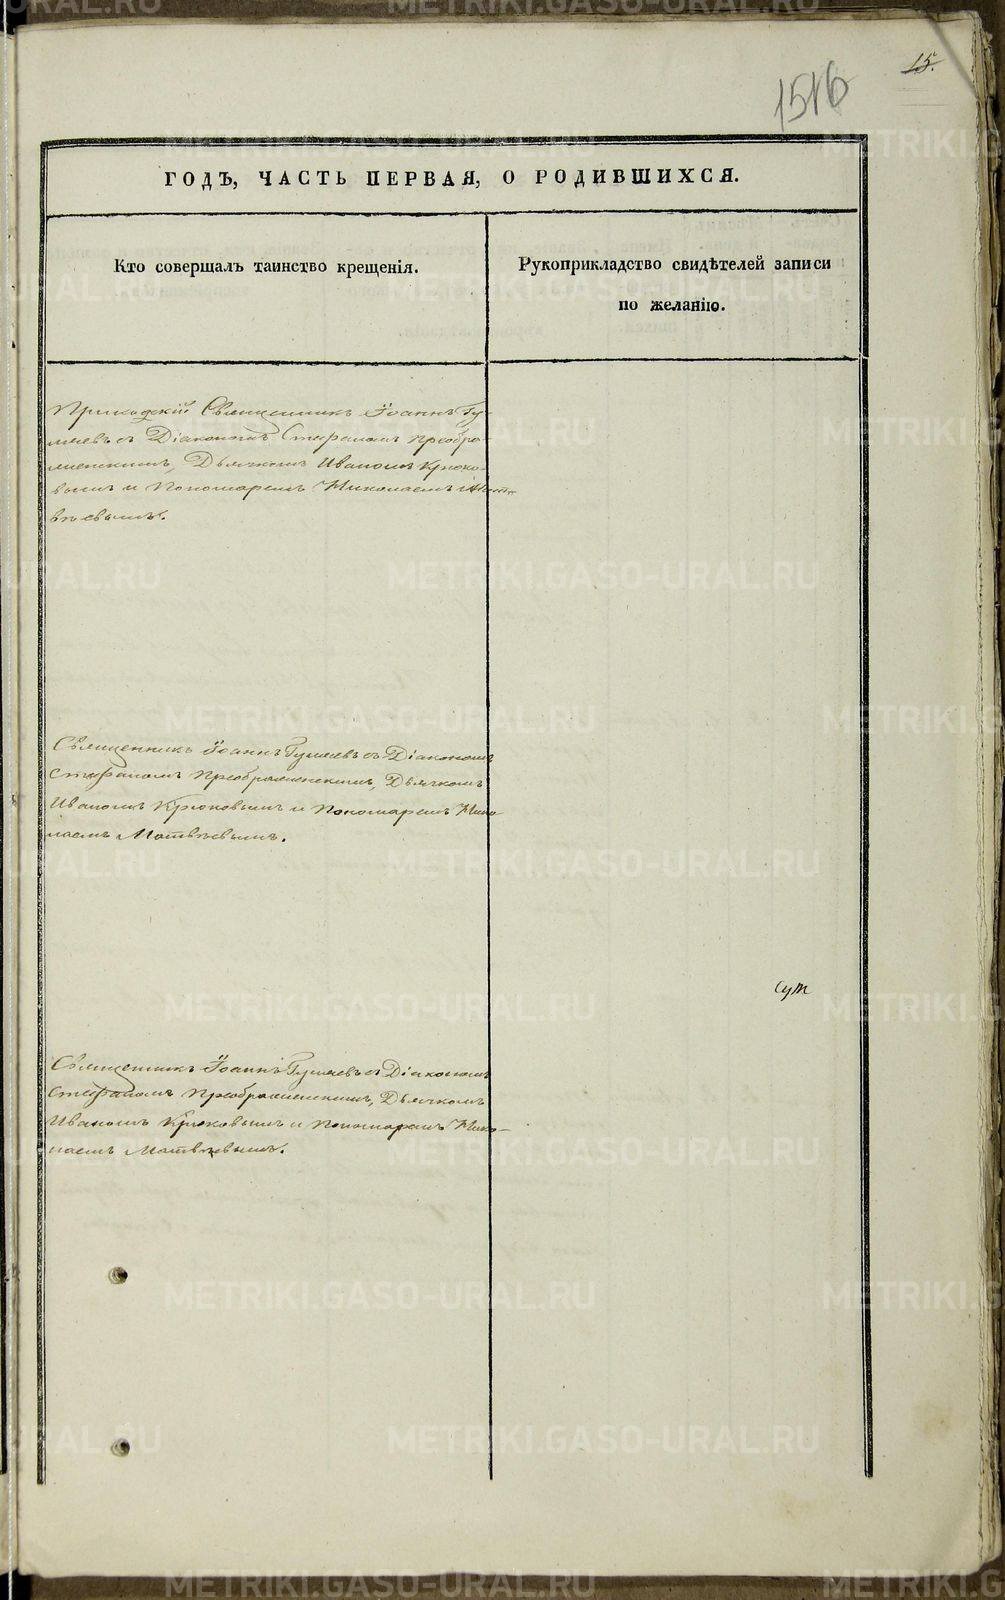 15.
1516
ГОДЪ, ЧАСТЬ ПЕРВАЯ, О РОДИВШИХСЯ.
Кто совершалъ таинство крещенія.
Рукоприкладство свидѣтелей записи
по желанію.
Приходскій Священникъ Іоаннъ Гу-
съ Діакономъ Стефаномъ Преобра-
женскимъ, Дьячкомъ Иваномъ Крюко-
вымъ и Пономаремъ Николаемъ Мат-
вѣевымъ.
Священникъ Іоаннъ съ Діакономъ
Стефаномъ Преображенскимъ, Дьячкомъ
Иваномъ Крюковымъ и Пономаремъ Нико-
лаемъ Матвѣевымъ.
Священникъ Іоаннъ съ Діакономъ
Стефаномъ Преображенскимъ, Дьячкомъ
Иваномъ Крюковымъ и Пономаремъ Нико-
лаемъ Матвѣевымъ.
METRIKI.GASO-URAL.RU